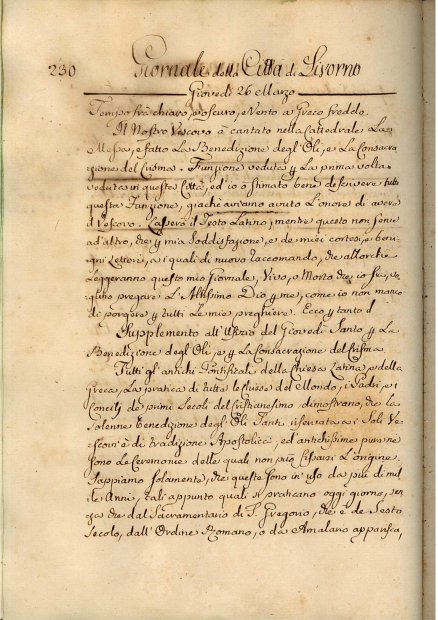 230 Giornale della Città di Livorno
Giovedì 26 Marzo
Tempo frà chiaro, e oscuro, e Vento a Greco freddo.
Il Nostro Vescovo à cantato nella Cattedrale La
Messa, e fatto La Benedizione degl'Oli, e La Consacra
zione del Crisma. Funzione veduta p La prima volta
veduta in questa Città, ed io ò stimato bene descrivere tutta
questa Funzione, giachè aviamo avuto L'onore di avere
il Vescovo. Lascerò il Testo Latino, mentre questo non serve
ad'altro, che p mia soddisfazione, e de miei cortesi, e beni
gni Lettori, a i quali di nuovo raccomando, che allorchè
Leggeranno questo mio Giornale, Vivo, o Morto che io sia,
pregare L'Altissimo Dio p me, come io non manco
di porgere p tutti Le mie preghiere. Ecco p tanto il
Supplemento all'Ufizio del Giovedì Santo p La
Benedizione degl'Oli, e p La Consacrazione del Crisma.
Tutti gl'antichi Pontificali della Chiesa Latina, e della
Greca, La pratica di tutte le Chiese del Mondo, i Padri, e i
Concilj de primi Secoli del Cristianesimo dimostrano, che la
solenne Benedizione degl'Oli Santi riservata a i Soli Ve-
scovi è di tradizione Apostolica, ed antichissime pure ne
sono Le Ceremonie delle quali non può fissarsi L'origine.
Sappiamo solamente, che queste sono in'uso da più di mil
le Anni, tali appunto quali si praticano oggi giorno, sen
za che dal Sacramentario di S. Gregorio, che è del Sesto
Secolo, dall'Ordine Romano, o da Amalario apparisca,